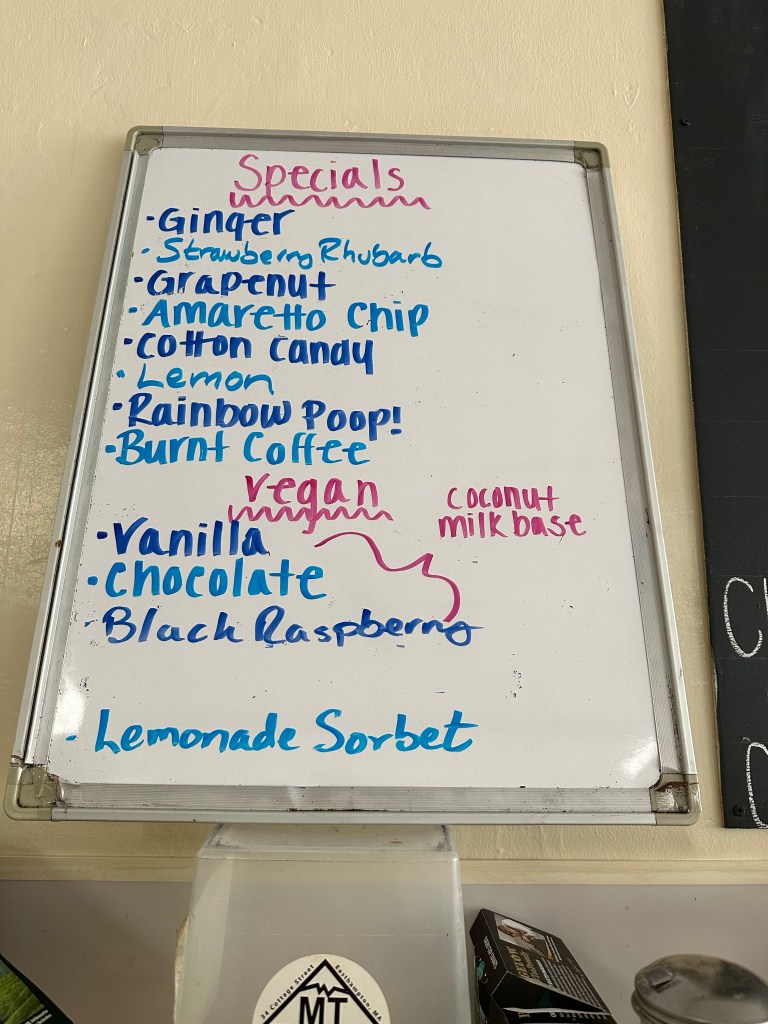 Specials
• Ginger
• Strawberry Rhubarb
• Grapenut
• Amaretto Chip
• Cotton Candy
• Lemon
• Rainbow Poop!
• Burnt Coffee
Vegan
coconut
milk base
• Vanilla
• Chocolate
• Black Raspberry
• Lemonade Sorbet
34 Cottage Street
Easthampton, MA
MT